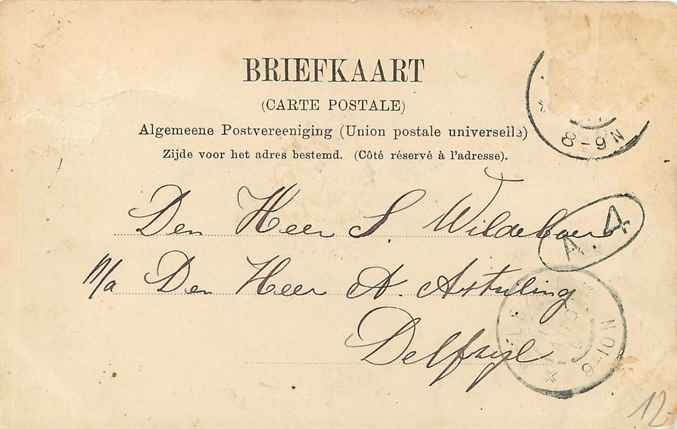 BRIEFKAART
(CARTE POSTALE)
Algemeene Postvereeniging (Union postale universelle)
Zijde voor het adres bestemd. (Côté réservé à l'adresse).
8-9N
Den Heer S. Wildeboer
A. 4
p/a Den Heer A. Artsling
Delfzyl
9-10N
12-